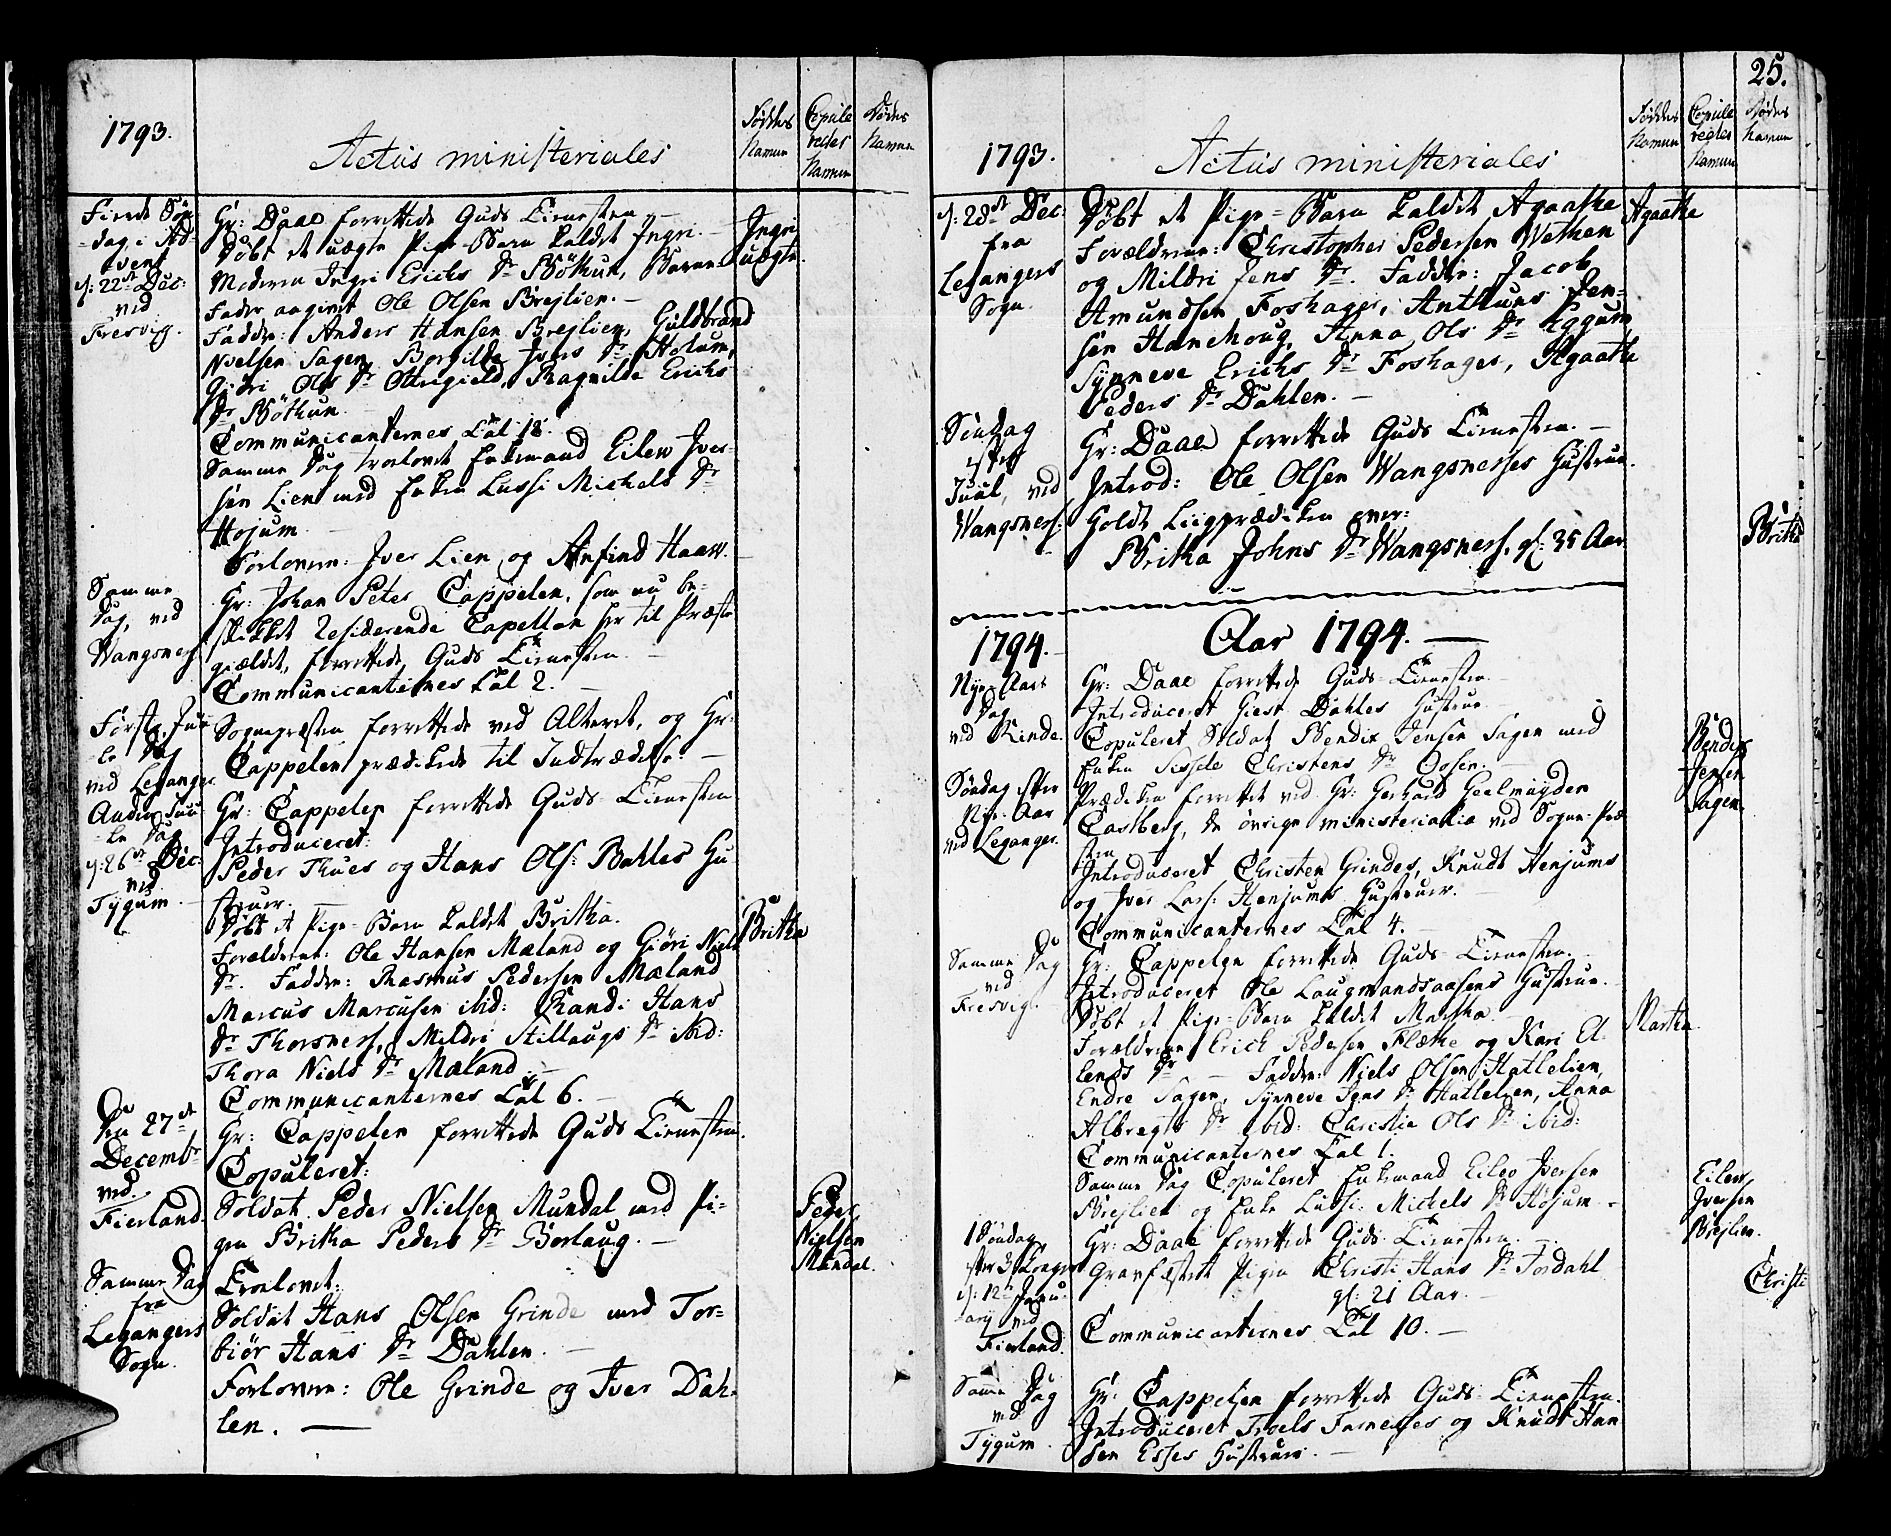 1793.
Actus ministeriales
Fødtes Namne
Copule redtes Namne
Dødes Namne
Fierde Søn
-dag i Ad-
vent
d: 22de Dec:
ved
Fresvig.
Hr: Daae forrettede Guds Tienesten
Døbt et uægte Pige-Barn kaldet Ingri.
Moderen Ingri Erichs Dr Böthun, Barne-
Fader angivet Ole Olsen Brejlien.-
Faddere: Anders Hansen Brejlien, Guldbrand
Nielsen Sagen, Borgilde Ivers Dr Holum,
Giöri Ols Dr Ottrigield, Ragnilde Erichs
Dr Böthun.
Communicanternes Tal 18.
Samme Dag trolovet Enkemand Eilew Iver-
sen Lien med Enken Lussi Michels Dr
Hojum
Forlovere: Iver Lien og Anfind Haaw.
Ingri
uægte.
Samme
Dag, ved
Wangsness
Hr: Johan Peter Cappelen, som nu be-
skikket Residerende Capellan her til Præste
gieldet, forrettede Guds Tienesten
Communicanternes Tal 2.
Første Juu-
le Dag
ved Leganger
Sognepræsten forrettede ved Alteret, og Hr:
Cappelen prædikede til Indtrædelse.
Anden Juu-
le Dag
d: 26de Dec:
ved
Tygum
Hr: Cappelen forrettede Guds Tienesten
Introduceret:
Peder Thues og Hans Ols: Bahles Hu-
struer.
Døbt et Pige-Barn kaldet Britha.
Forældrene: Ole Hansen Mæland og Giöri Niels
Dr. Faddere: Rasmus Pedersen Mæland
Marcus Marcusen ibid: Randi Hans
Dr Thorsness, Mildri Stillaugs Dr ibid:
Thora Niels Dr Mæland.-
Communicanternes Tal 6.
Britha
Den 27de
Decembr
ved
Fierland.
Hr: Cappelen forrettede Guds Tienesten.
Copuleret:
Soldat Peder Nielsen Mundal med Pi-
gen Britha Peders Dr Borlaug.
Peder
Nielsen
Mundal.
Samme Dag
fra
Legangers
Sogn.
Trolovet:
Soldat Hans Olsen Grinde med Tor-
biör Hans Dr Dahlen.
Forlovere: Ole Grinde og Iver Dah-
len.
25.
1793.
Actus ministeriales
Fødtes Namne
Copule redtes Namne
Dødes Namne
d: 28de Dec:
fra
Legangers
Sogn.
Døbt et Pige-Barn kaldet Agathe
Forældrene: Christopher Pedersen Wethen
og Mildri Jens Dr. Faddere: Jacob
Amundsen Foshager, Anthuns Jen-
sen Hanehoug, Anna Ols Dr Eggum,
Synneve Erichs Dr Foshager, Agaathe
Peders Dr Dahlen.
Agaathe
Søndag
efter
Juul, ved
Wangsness:
Hr: Daae forrettede Guds Tienesten.
Introd: Ole Olsen Wangsnesses Hustrue.
Holdt Liigprædiken over:
Britha Johns Dr Wangsness, gl: 35 Aar
Britha
1794.
Aar 1794.
Nye Aars
Dag
ved Rinde.
Hr: Daae forrettede Guds Tienesten.
Introduceret Giest Dahles Hustrue
Copuleret Soldat Bendix Jensen Sagen med
Enken Sissele Christens Dr Oosen.
Bendix
Jensen
Sagen
Søndag efter
Nye-Aar
ved Leganger.
Prædiken forrettet ved Hr: Gerhard Geelmuyden
Castberg, de øvrige ministerialia ved Sogne-Præ
sten
Introduceret Christen Grindes, Knudt Henjums
og Iver Lars: Henjums Hustruer.
Communicanternes Tal 4.
Samme Dag
ved
Fresvig.
Hr: Cappelen forrettede Guds-Tienesten.
Introduceret Ole Laugmandsaasens Hustrue.
Døbt et Pige-Barn kaldet Martha
Forældrene Erich Pedersen Flæthe og Kari El-
lends Dr Faddere: Niels Olsen Hattelien,
Endre Sagen, Synneve Jens Dr Hattelien, Anna
Albregts Dr ibid: Christie Ols Dr ibid:
Communicanternes Tal 1.
Samme Dag Copuleret Enkemand Eilev Iversen
Brejlien og Enke Lussi Michels Dr Hojum
Martha
Eilew
Iversen
Brejlien.
1 Søndag
efter d: Konger
d: 12te Janu-
arij ved
Fierland.
Hr: Daae forrettede Guds-Tienesten.
Gravfæstet Pigen Christi Hans Dr Jordahl
gl: 21 Aar.
Communicanternes Tal 10.
Christi
Samme Dag
ved
Tygum
Hr: Cappelen forrettede Guds-Tienesten.
Introduceret Troels Farneses og Knudt Han
sen Esses Hustruer.